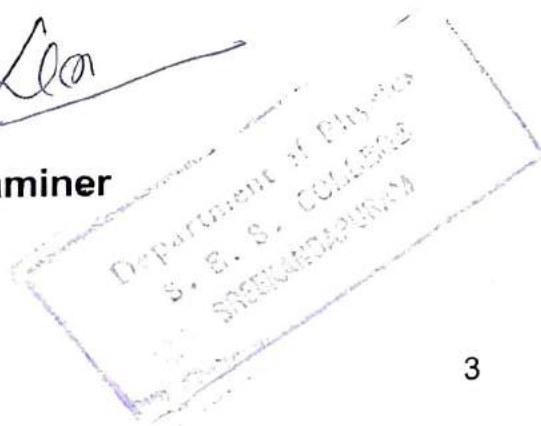 aminer
Department of Physics
S. E. S. COLLEGE
SREEKANDAPURAM
3